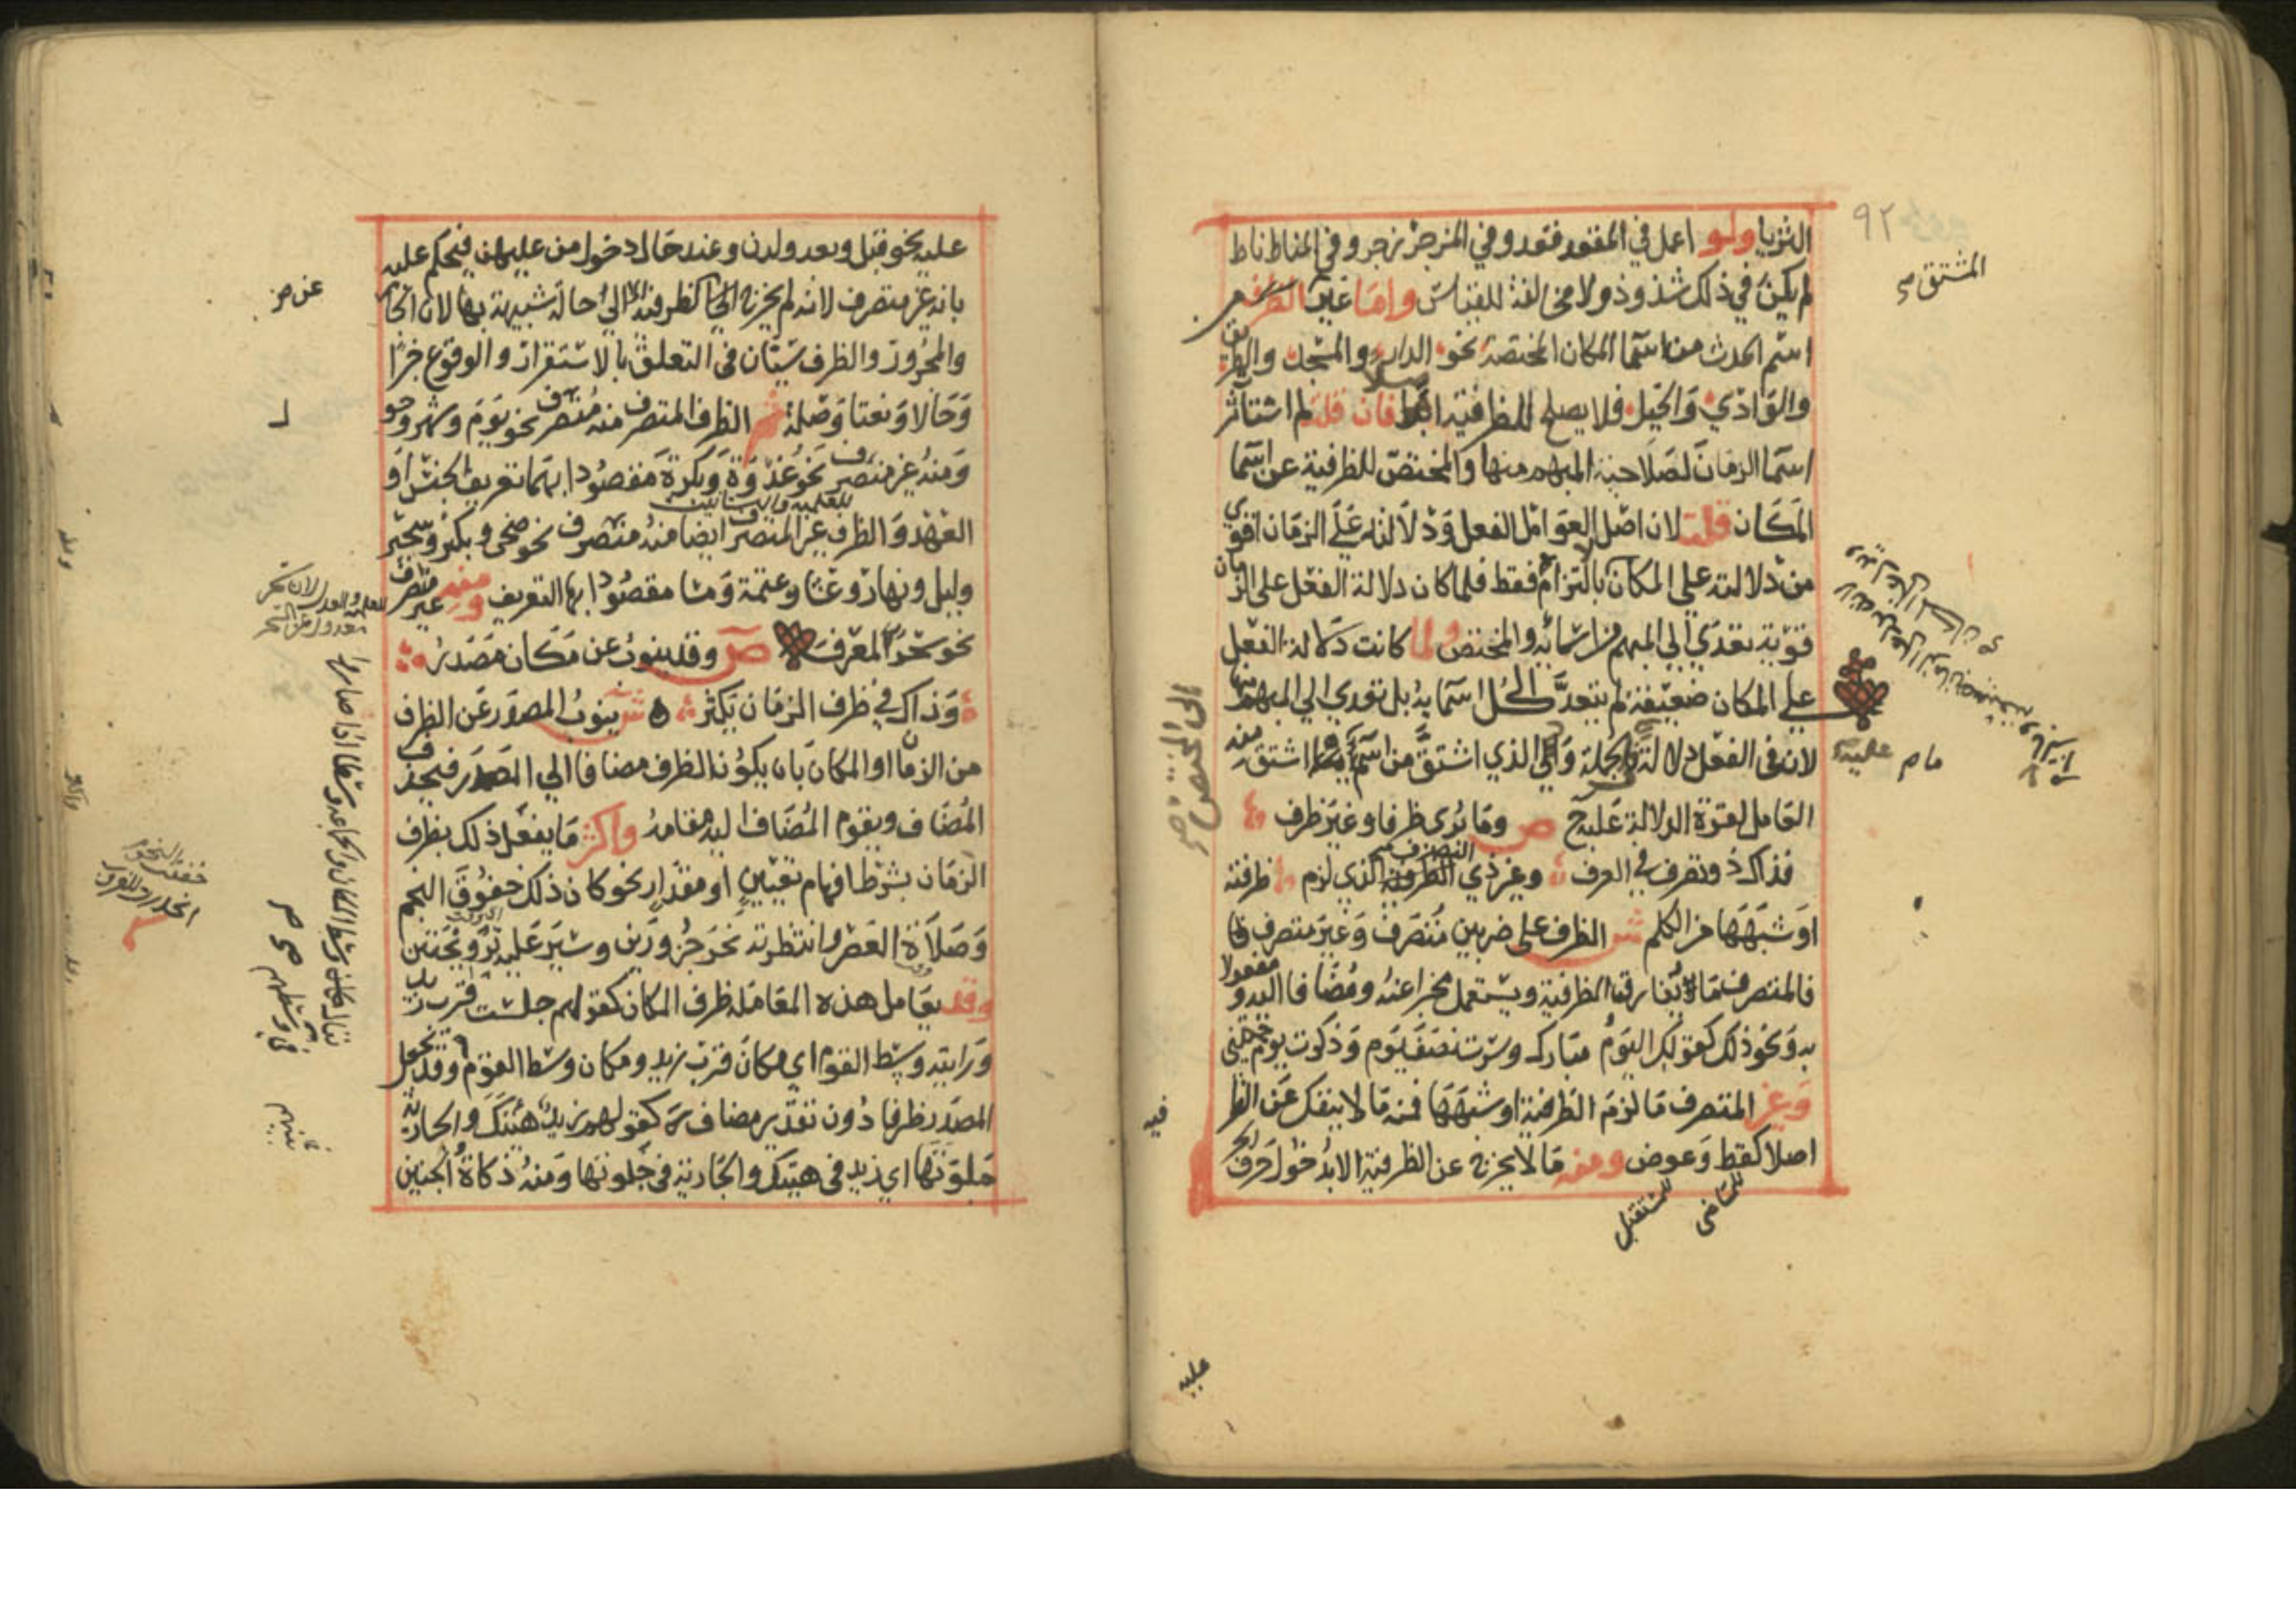 ٩٢
الثريا ولو اعمل في المقعد قعد وفي المزجر زجر وفي المناط ناط
لم يكن في ذلك شذوذ ولا مخالفة للقياس واما غير الظرف من
اسم الحدث من اسما المكان المختصة نحو الدار والمسجد والطريق
والوادي والجبل فلا يصلح للظرفية اصلا فان قلت لم استاثر
اسما الزمان لصلاحية المبهم منها والمختص للظرفية عن اسما
المكان قلت لان اصل العوامل الفعل ودلالته على الزمان اقوي
من دلالته على المكان بالالتزام فقط فلما كان دلالة الفعل على الزمان
قوية تعدي الي المبهم من اسمائه والمختص ولما كانت دلالة الفعل
على المكان ضعيفة لم يتعد الي كل اسمايه بل تعدي الي المبهم منها
لان في الفعل دلالة بالجملة والي الذي اشتق من اسم ما اشتق منه
العامل لقوة الدلالة عليه ح ص وما يري ظرفا وغير ظرف
فذاك ذو تصرف في العرف وغير ذي التصرف الذي لزم ظرفية
او شبهها من الكلم ش الظرف على ضربين متصرف وغير متصرف
فالمتصرف ما يفارق الظرفية ويستعمل مخبرا عنه ومضافا اليه ومفعولا
به ونحو ذلك كقولك اليوم مبارك وسرت نصف يوم وذكرت يوم جئتني
وغير المتصرف ما لزم الظرفية او شبهها فمنه ما لا ينفك عن الظرفية
اصلا كقط وعوض ومنه ما لا يخرج عن الظرفية الا بدخول حرف الجر
للماضي
للمستقبل
المشتق صح
الي المختص صح
فيه
عليه
عليه نحو قبل وبعد ولدن وعند حال دخول من عليهن فيحكم عليه
بانه غير متصرف لانه لم يخرج عن الظرفية الا الي حالة شبيهة بها لان الجار
والمجرور والظرف سيان في التعلق بالاستقرار والوقوع خبرا
وحالا ونعتا وصلة ثم الظرف المتصرف منه منصرف نحو يوم وشهر وحول
ومنه غير منصرف نحو غدوة وبكرة مقصودا بهما تعريف الجنس او
للعلمية والتانيث
العهد والظرف غير المتصرف ايضا منه منصرف نحو ضحى وبكر وسحير
وليل ونهار وعشا وعتمة ومسا مقصودا بها التعريف ومنه غير منصرف
نحو سحر المعرف ص وقد ينوب عن مكان مصدر
وذاك في ظرف الزمان يكثر ش ينوب المصدر عن الظرف
من الزمان او المكان بان يكون الظرف مضافا الي المصدر فيحذف
المضاف ويقوم المضاف اليه مقامه واكثر ما يفعل ذلك بظرف
الزمان بشرط افهام تعيين او مقدار نحو كان ذلك خفوق النجم
وصلاة العصر وانتظرته نحر جزورين وسير عليه ترويحتين
وقد يعامل هذه المعاملة ظرف المكان كقولهم جلست قرب زيد
ورايته وسط القوم اي مكان قرب زيد ومكان وسط القوم وقد يجعل
المصدر ظرفا دون تقدير مضاف كقولهم زيد هيئتك والجارية
جلوتها اي زيد في هيئتك والجارية في جلوتها ومنه ذكاة الجنين
عن صح
خفقت النجوم